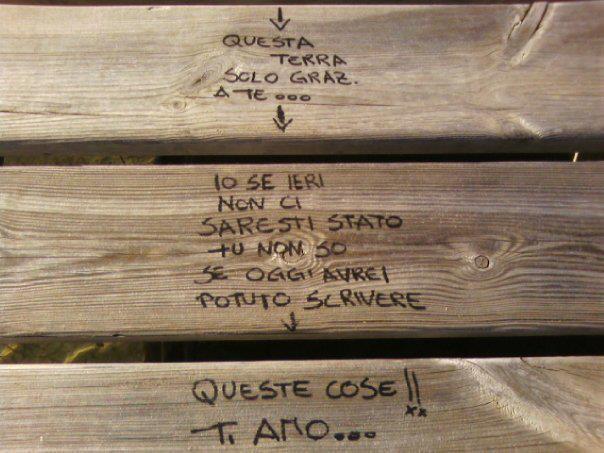 QUESTA
TERRA
SOLO GRAZ.
A TE...
IO SE IERI
NON CI
SARESTI STATO
TU NON SO
SE OGGI AVREI
POTUTO SCRIVERE
QUESTE COSE!!
xx
TI AMO...